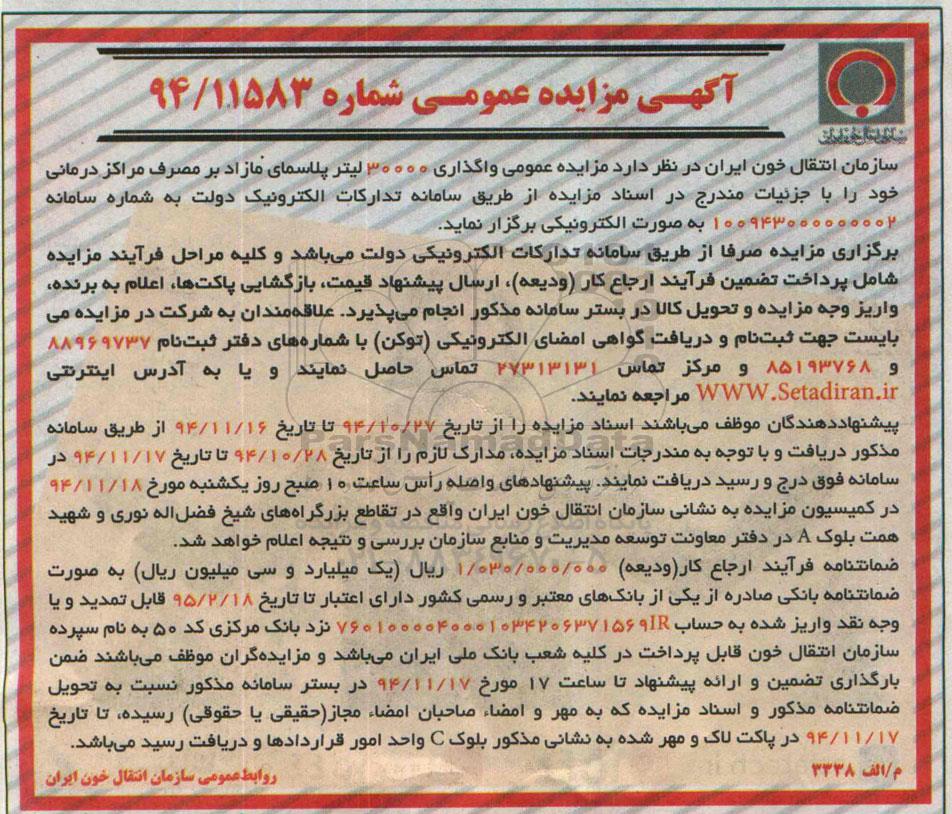 آگهـی مزایده عمومـی شماره ۹۴/۱۱۵۸۳
سازمان انتقال خون ایران
سازمان انتقال خون ایران در نظر دارد مزایده عمومی واگذاری ۳۰۰۰۰ لیتر پلاسمای مازاد بر مصرف مراکز درمانی
خود را با جزئیات مندرج در اسناد مزایده از طریق سامانه تدارکات الکترونیک دولت به شماره سامانه
۱۰۰۹۴۳۰۰۰۰۰۰۰۰۰۲ به صورت الکترونیکی برگزار نماید.
برگزاری مزایده صرفا از طریق سامانه تدارکات الکترونیکی دولت می‌باشد و کلیه مراحل فرآیند مزایده
شامل پرداخت تضمین فرآیند ارجاع کار (ودیعه)، ارسال پیشنهاد قیمت، بازگشایی پاکت‌ها، اعلام به برنده،
واریز وجه مزایده و تحویل کالا در بستر سامانه مذکور انجام می‌پذیرد. علاقه‌مندان به شرکت در مزایده می
بایست جهت ثبت‌نام و دریافت گواهی امضای الکترونیکی (توکن) با شماره‌های دفتر ثبت‌نام ۸۸۹۶۹۷۳۷
و ۸۵۱۹۳۷۶۸ و مرکز تماس ۲۷۳۱۳۱۳۱ تماس حاصل نمایند و یا به آدرس اینترنتی
WWW.Setadiran.ir مراجعه نمایند.
پیشنهاددهندگان موظف می‌باشند اسناد مزایده را از تاریخ ۹۴/۱۰/۲۷ تا تاریخ ۹۴/۱۱/۱۶ از طریق سامانه
مذکور دریافت و با توجه به مندرجات اسناد مزایده، مدارک لازم را از تاریخ ۹۴/۱۰/۲۸ تا تاریخ ۹۴/۱۱/۱۷ در
سامانه فوق درج و رسید دریافت نمایند. پیشنهادهای واصله رأس ساعت ۱۰ صبح روز یکشنبه مورخ ۹۴/۱۱/۱۸
در کمیسیون مزایده به نشانی سازمان انتقال خون ایران واقع در تقاطع بزرگراه‌های شیخ فضل‌اله نوری و شهید
همت بلوک A در دفتر معاونت توسعه مدیریت و منابع سازمان بررسی و نتیجه اعلام خواهد شد.
ضمانتنامه فرآیند ارجاع کار(ودیعه) ۱/۰۳۰/۰۰۰/۰۰۰ ریال (یک میلیارد و سی میلیون ریال) به صورت
ضمانتنامه بانکی صادره از یکی از بانک‌های معتبر و رسمی کشور دارای اعتبار تا تاریخ ۹۵/۲/۱۸ قابل تمدید و یا
وجه نقد واریز شده به حساب ۷۶۰۱۰۰۰۰۴۰۰۰۱۰۳۴۲۰۶۳۷۱۵۶۹IR نزد بانک مرکزی کد ۵۰ به نام سپرده
سازمان انتقال خون قابل پرداخت در کلیه شعب بانک ملی ایران می‌باشد و مزایده‌گران موظف می‌باشند ضمن
بارگذاری تضمین و ارائه پیشنهاد تا ساعت ۱۷ مورخ ۹۴/۱۱/۱۷ در بستر سامانه مذکور نسبت به تحویل
ضمانتنامه مذکور و اسناد مزایده که به مهر و امضاء صاحبان امضاء مجاز(حقیقی یا حقوقی) رسیده، تا تاریخ
۹۴/۱۱/۱۷ در پاکت لاک و مهر شده به نشانی مذکور بلوک C واحد امور قراردادها و دریافت رسید می‌باشد.
م/الف ۳۳۳۸
روابط‌عمومی سازمان انتقال خون ایران
ParsNamadData